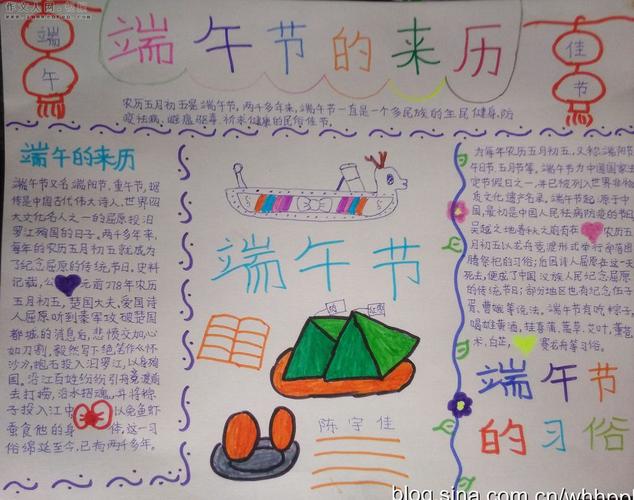 作文大全网
端午
端午节的来历
佳节
农历五月初五是端午节,两千多年来,端午节一直是一个多民族的全民健身,防
疫祛病、避瘟驱毒、祈求健康的民俗佳节。
端午的来历
端午节又名端阳节,重午节,据
传是中国古代伟大诗人、世界四
大文化名人之一的屈原投汨
罗江殉国的日子。两千多年来,
每年的农历五月初五就成为
了纪念屈原的传统节日。史料
记载,公元前278年农历
五月初五,楚国大夫、爱国诗
人屈原听到秦军攻破楚国
都城的消息后,悲愤交加,心
如刀割,毅然写下绝笔作《怀
沙》,抱石投入汨罗江,以身殉
国。沿江百姓纷纷引舟竞渡前
去打捞,沿水招魂,并将粽
子投入江中 以免鱼虾
蚕食他的身体,这一习
俗绵延至今,已有两千多年。
端午节
陈宇佳
为每年农历五月初五,又称端阳节,
午日节、五月节等,端午节为中国国家法
定节假日之一,并已被列入世界非物
质文化遗产名录。端午节起源于中
国,最初是中国人民祛病防疫的节日,
吴越之地春秋之前有在农历五
月初五以龙舟竞渡形式举行部落图
腾祭祀的习俗;后因诗人屈原在这一天
死去,便成了中国汉族人民纪念屈原
的传统节日;部分地区也有纪念伍子
胥、曹娥等说法。端午节有吃粽子,
喝雄黄酒,挂菖蒲、蒿草、艾叶,薰苍
术、白芷,赛龙舟等习俗。
端午节
的习俗